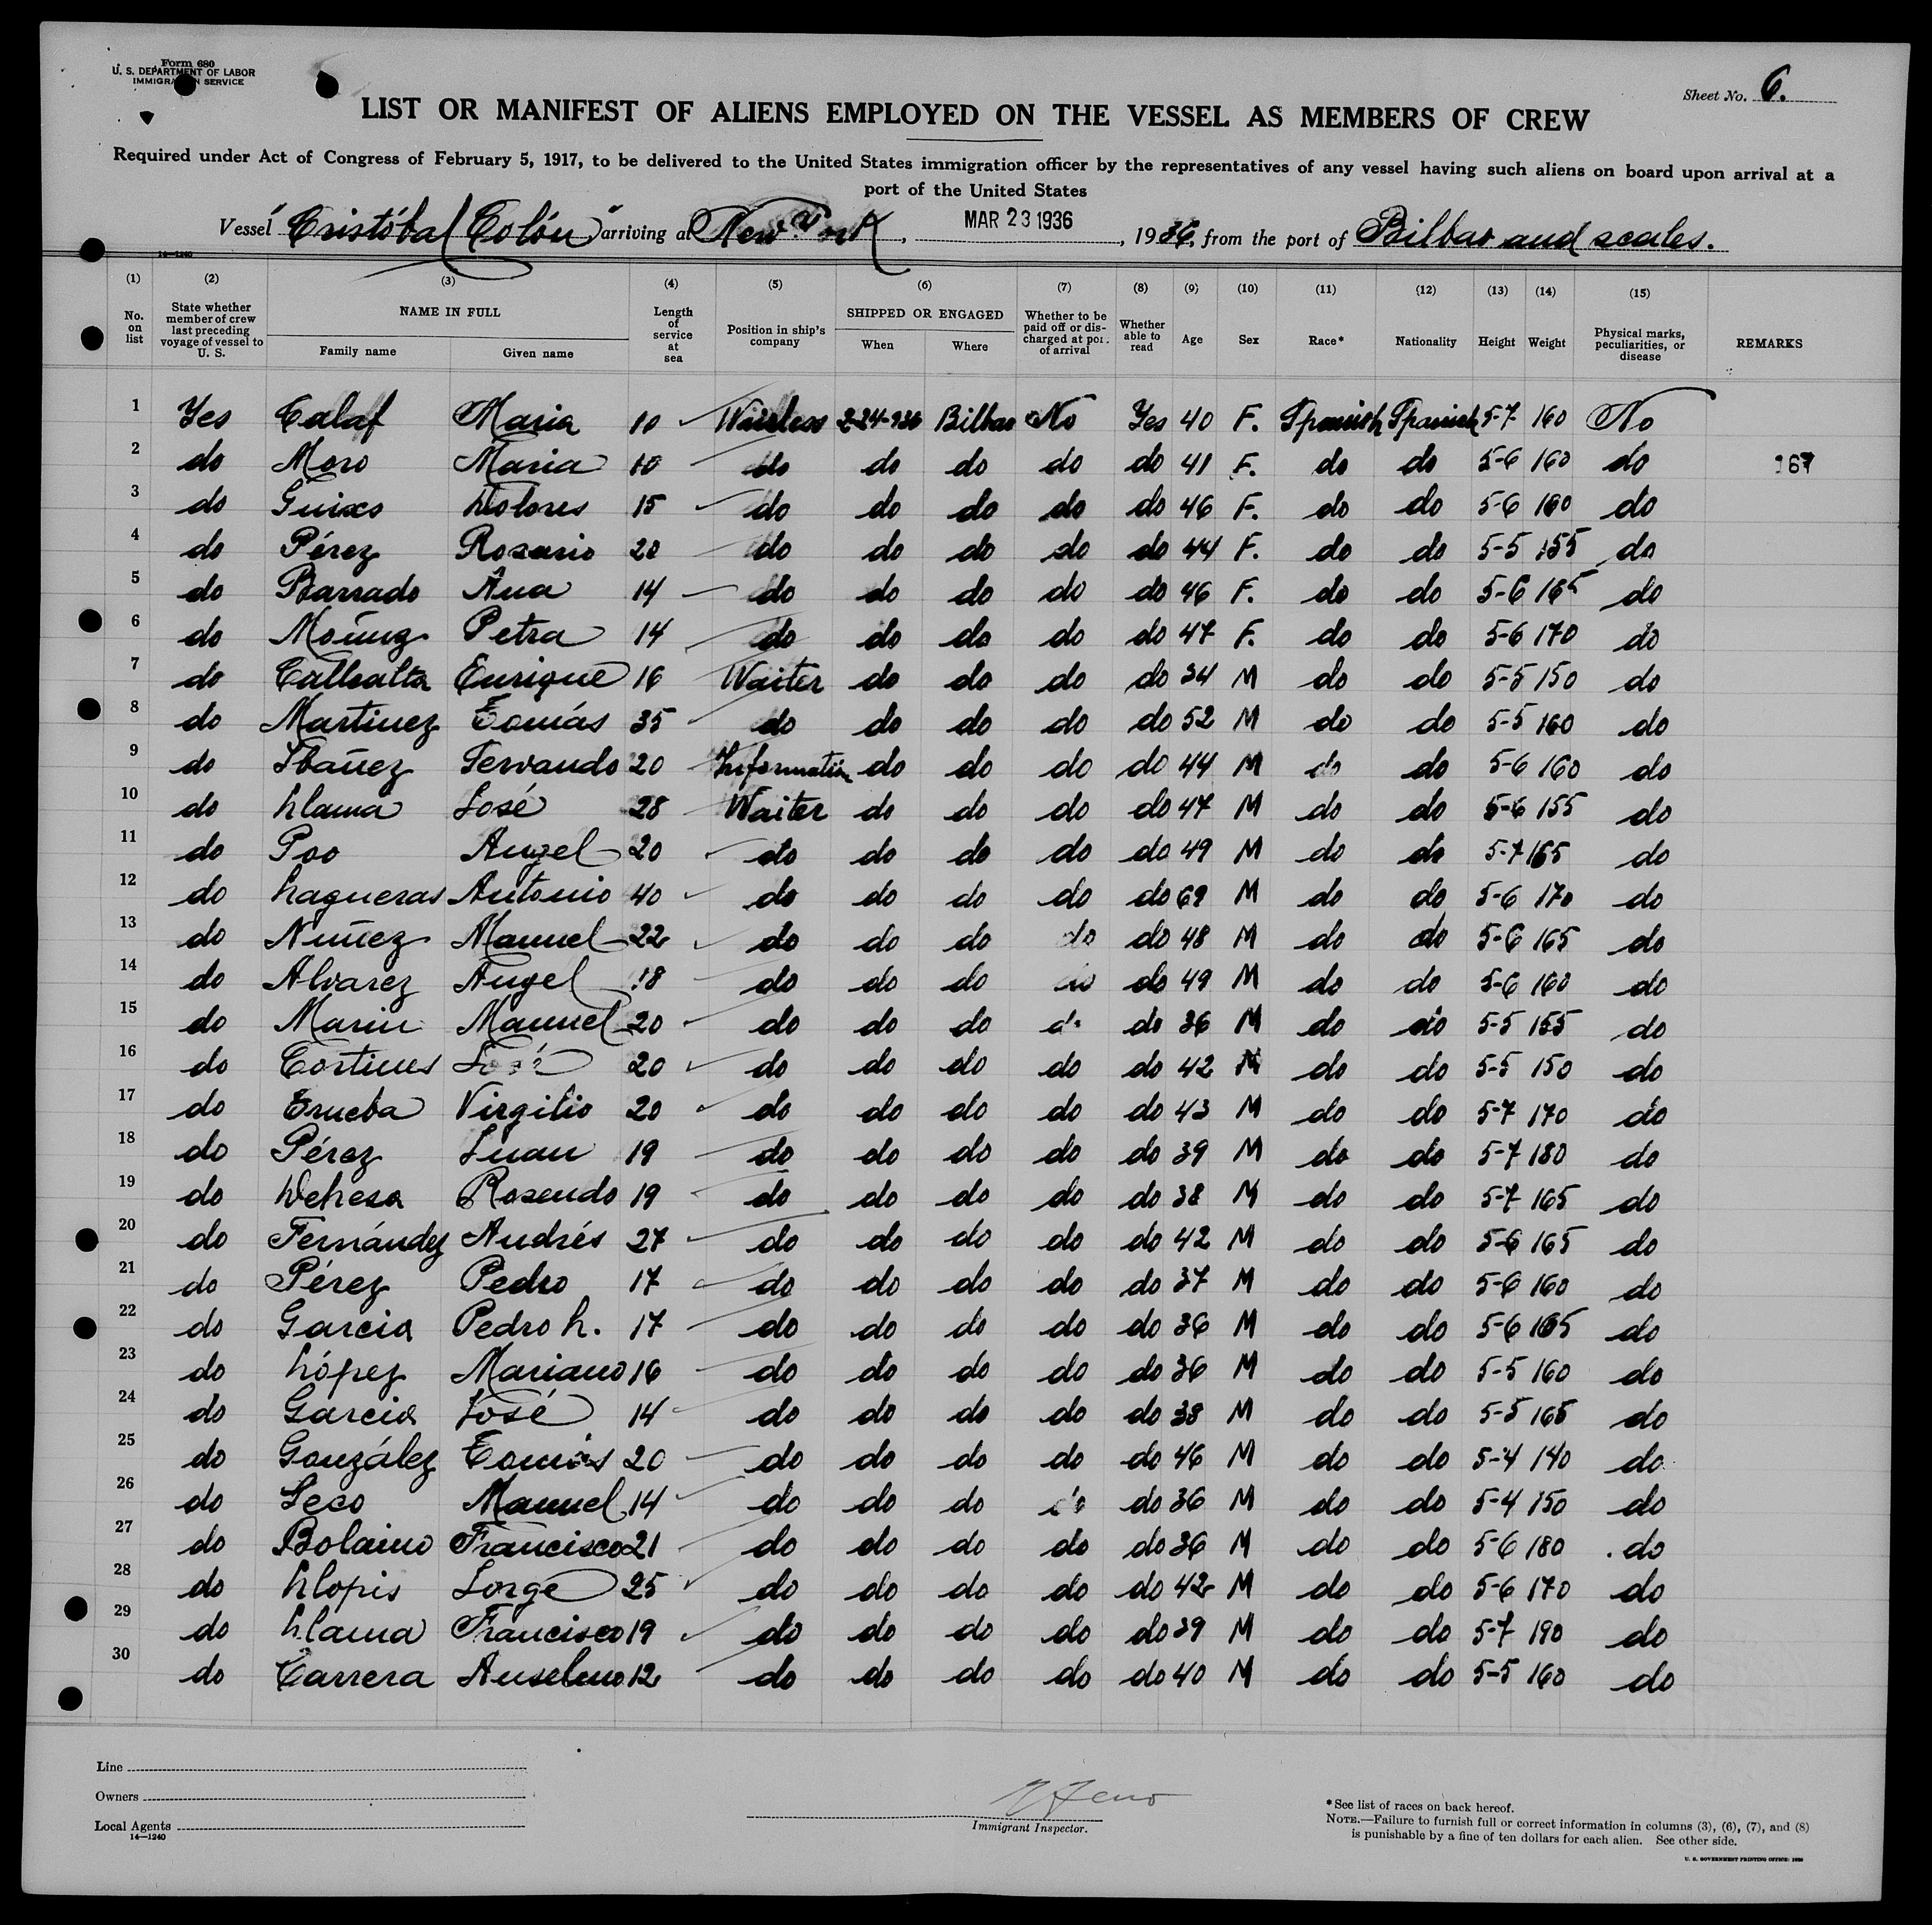 Form 680
U. S. DEPARTMENT OF LABOR
IMMIGRATION SERVICE
Sheet No. 6.
LIST OR MANIFEST OF ALIENS EMPLOYED ON THE VESSEL AS MEMBERS OF CREW
Required under Act of Congress of February 5, 1917, to be delivered to the United States immigration officer by the representatives of any vessel having such aliens on board upon arrival at a
port of the United States
Vessel "Cristóbal Colón" arriving at New York, MAR 23 1936, 1936, from the port of Bilbao and scales.
14—1240
(1) (2) (3) (4) (5) (6) (7) (8) (9) (10) (11) (12) (13) (14) (15)
No. on list | State whether member of crew last preceding voyage of vessel to U. S. | NAME IN FULL Family name Given name | Length of service at sea | Position in ship's company | SHIPPED OR ENGAGED When Where | Whether to be paid off or discharged at port of arrival | Whether able to read | Age | Sex | Race* | Nationality | Height | Weight | Physical marks, peculiarities, or disease | REMARKS
1 Yes Calaf Maria 10 Waitress 2-24-936 Bilbao No Yes 40 F. Spanish Spanish 5-7 160 No
2 do Moro Maria 10 do do do do do 41 F. do do 5-6 160 do 167
3 do Guixo Dolores 15 do do do do do 46 F. do do 5-6 160 do
4 do Pérez Rosario 20 do do do do do 44 F. do do 5-5 155 do
5 do Barrado Ana 14 do do do do do 46 F. do do 5-6 165 do
6 do Petra 14 do do do do do 47 F. do do 5-6 170 do
7 do Enrique 16 Waiter do do do do 34 M do do 5-5 150 do
8 do Martinez Tomás 35 do do do do do 52 M do do 5-5 160 do
9 do Ibañez Servando 20 Information do do do do 44 M do do 5-6 160 do
10 do Llama José 28 Waiter do do do do 47 M do do 5-6 155 do
11 do Poo Angel 20 do do do do do 49 M do do 5-7 165 do
12 do Lagueras Antonio 40 do do do do do 69 M do do 5-6 170 do
13 do Nuñez Manuel 22 do do do do do 48 M do do 5-6 165 do
14 do Alvarez Angel 18 do do do do do 49 M do do 5-6 160 do
15 do Marin Manuel 20 do do do do do 36 M do do 5-5 155 do
16 do Cortines José 20 do do do do do 42 M do do 5-5 150 do
17 do Trueba Virgilio 20 do do do do do 43 M do do 5-7 170 do
18 do Pérez Juan 19 do do do do do 39 M do do 5-7 180 do
19 do Dehesa Rosendo 19 do do do do do 38 M do do 5-7 165 do
20 do Fernández Andrés 27 do do do do do 42 M do do 5-6 165 do
21 do Pérez Pedro 17 do do do do do 37 M do do 5-6 160 do
22 do Garcia Pedro L. 17 do do do do do 36 M do do 5-6 165 do
23 do López Mariano 16 do do do do do 36 M do do 5-5 160 do
24 do Garcia José 14 do do do do do 38 M do do 5-5 165 do
25 do González Tomás 20 do do do do do 46 M do do 5-4 140 do
26 do Seco Manuel 14 do do do do do 36 M do do 5-4 150 do
27 do Bolaino Francisco 21 do do do do do 36 M do do 5-6 180 do
28 do Llopis Jorge 25 do do do do do 42 M do do 5-6 170 do
29 do Llama Francisco 19 do do do do do 39 M do do 5-7 190 do
30 do Carrera Anselmo 12 do do do do do 40 M do do 5-5 160 do
Line
Owners
Local Agents
14—1240
Immigrant Inspector.
*See list of races on back hereof.
NOTE.—Failure to furnish full or correct information in columns (3), (6), (7), and (8)
is punishable by a fine of ten dollars for each alien. See other side.